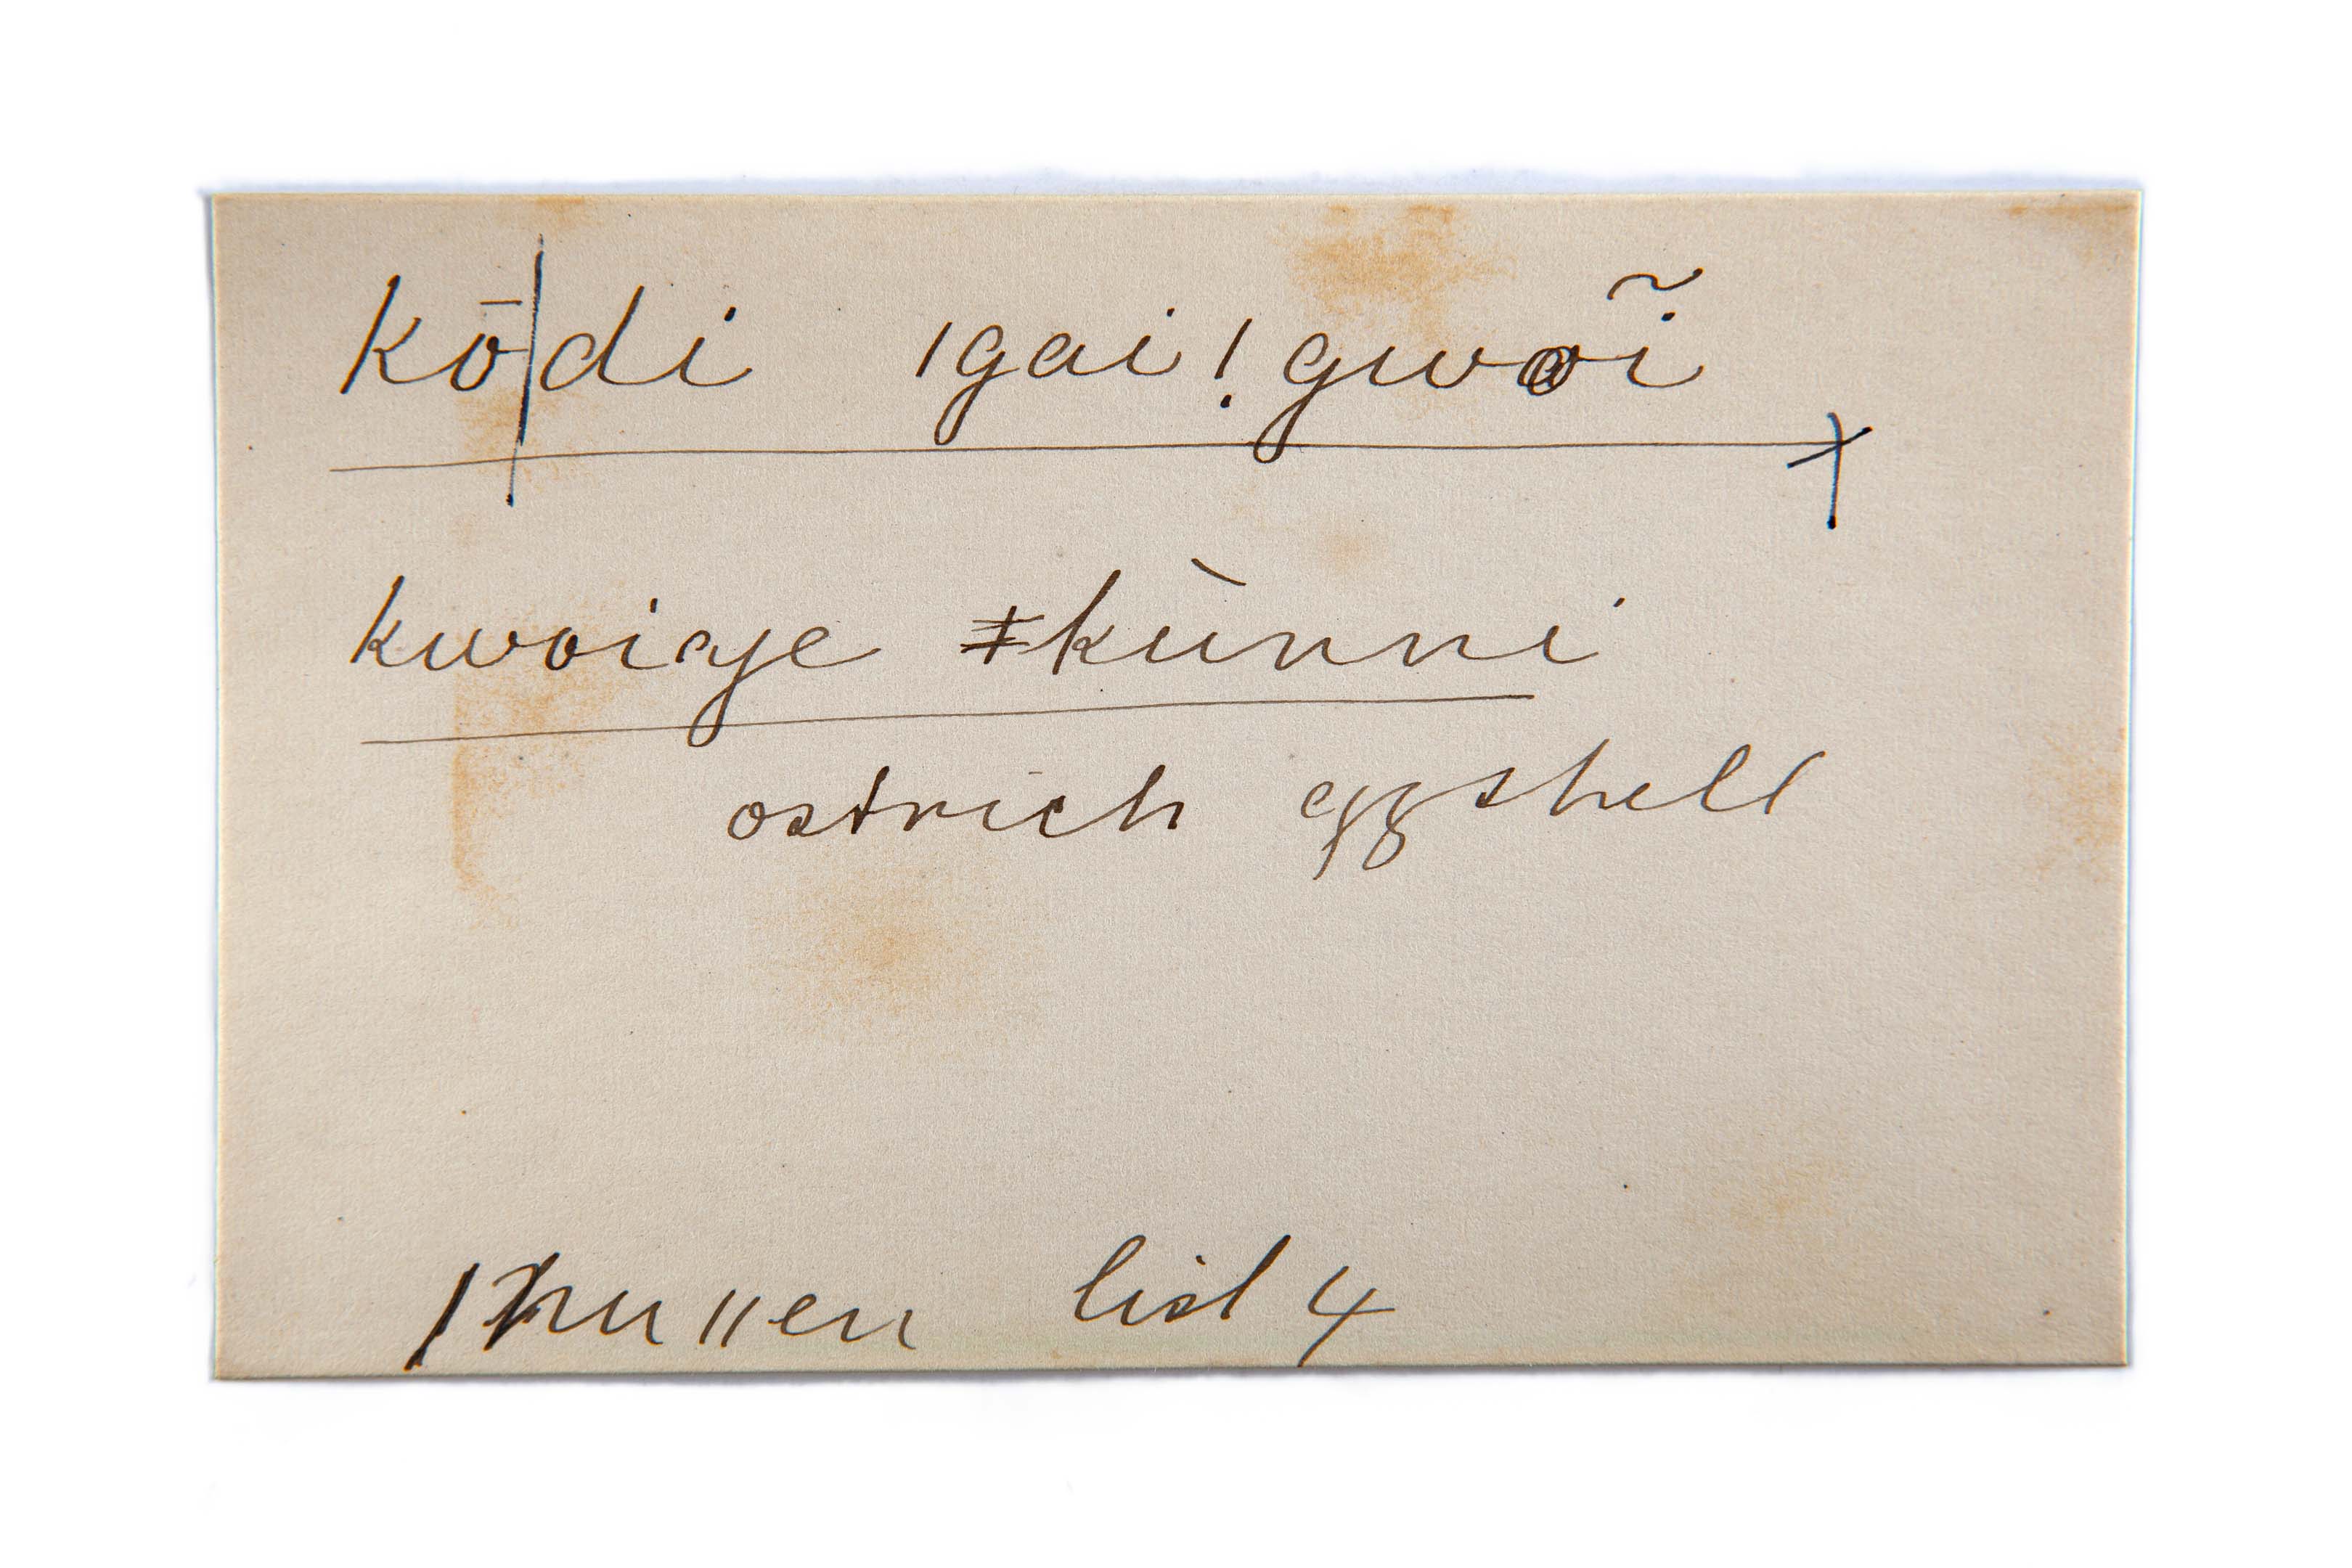 kō|di ǀgai!gwoĩ
kwoiǝye ǂkùnni
ostrich eggshell
ǀhuǁen list 4